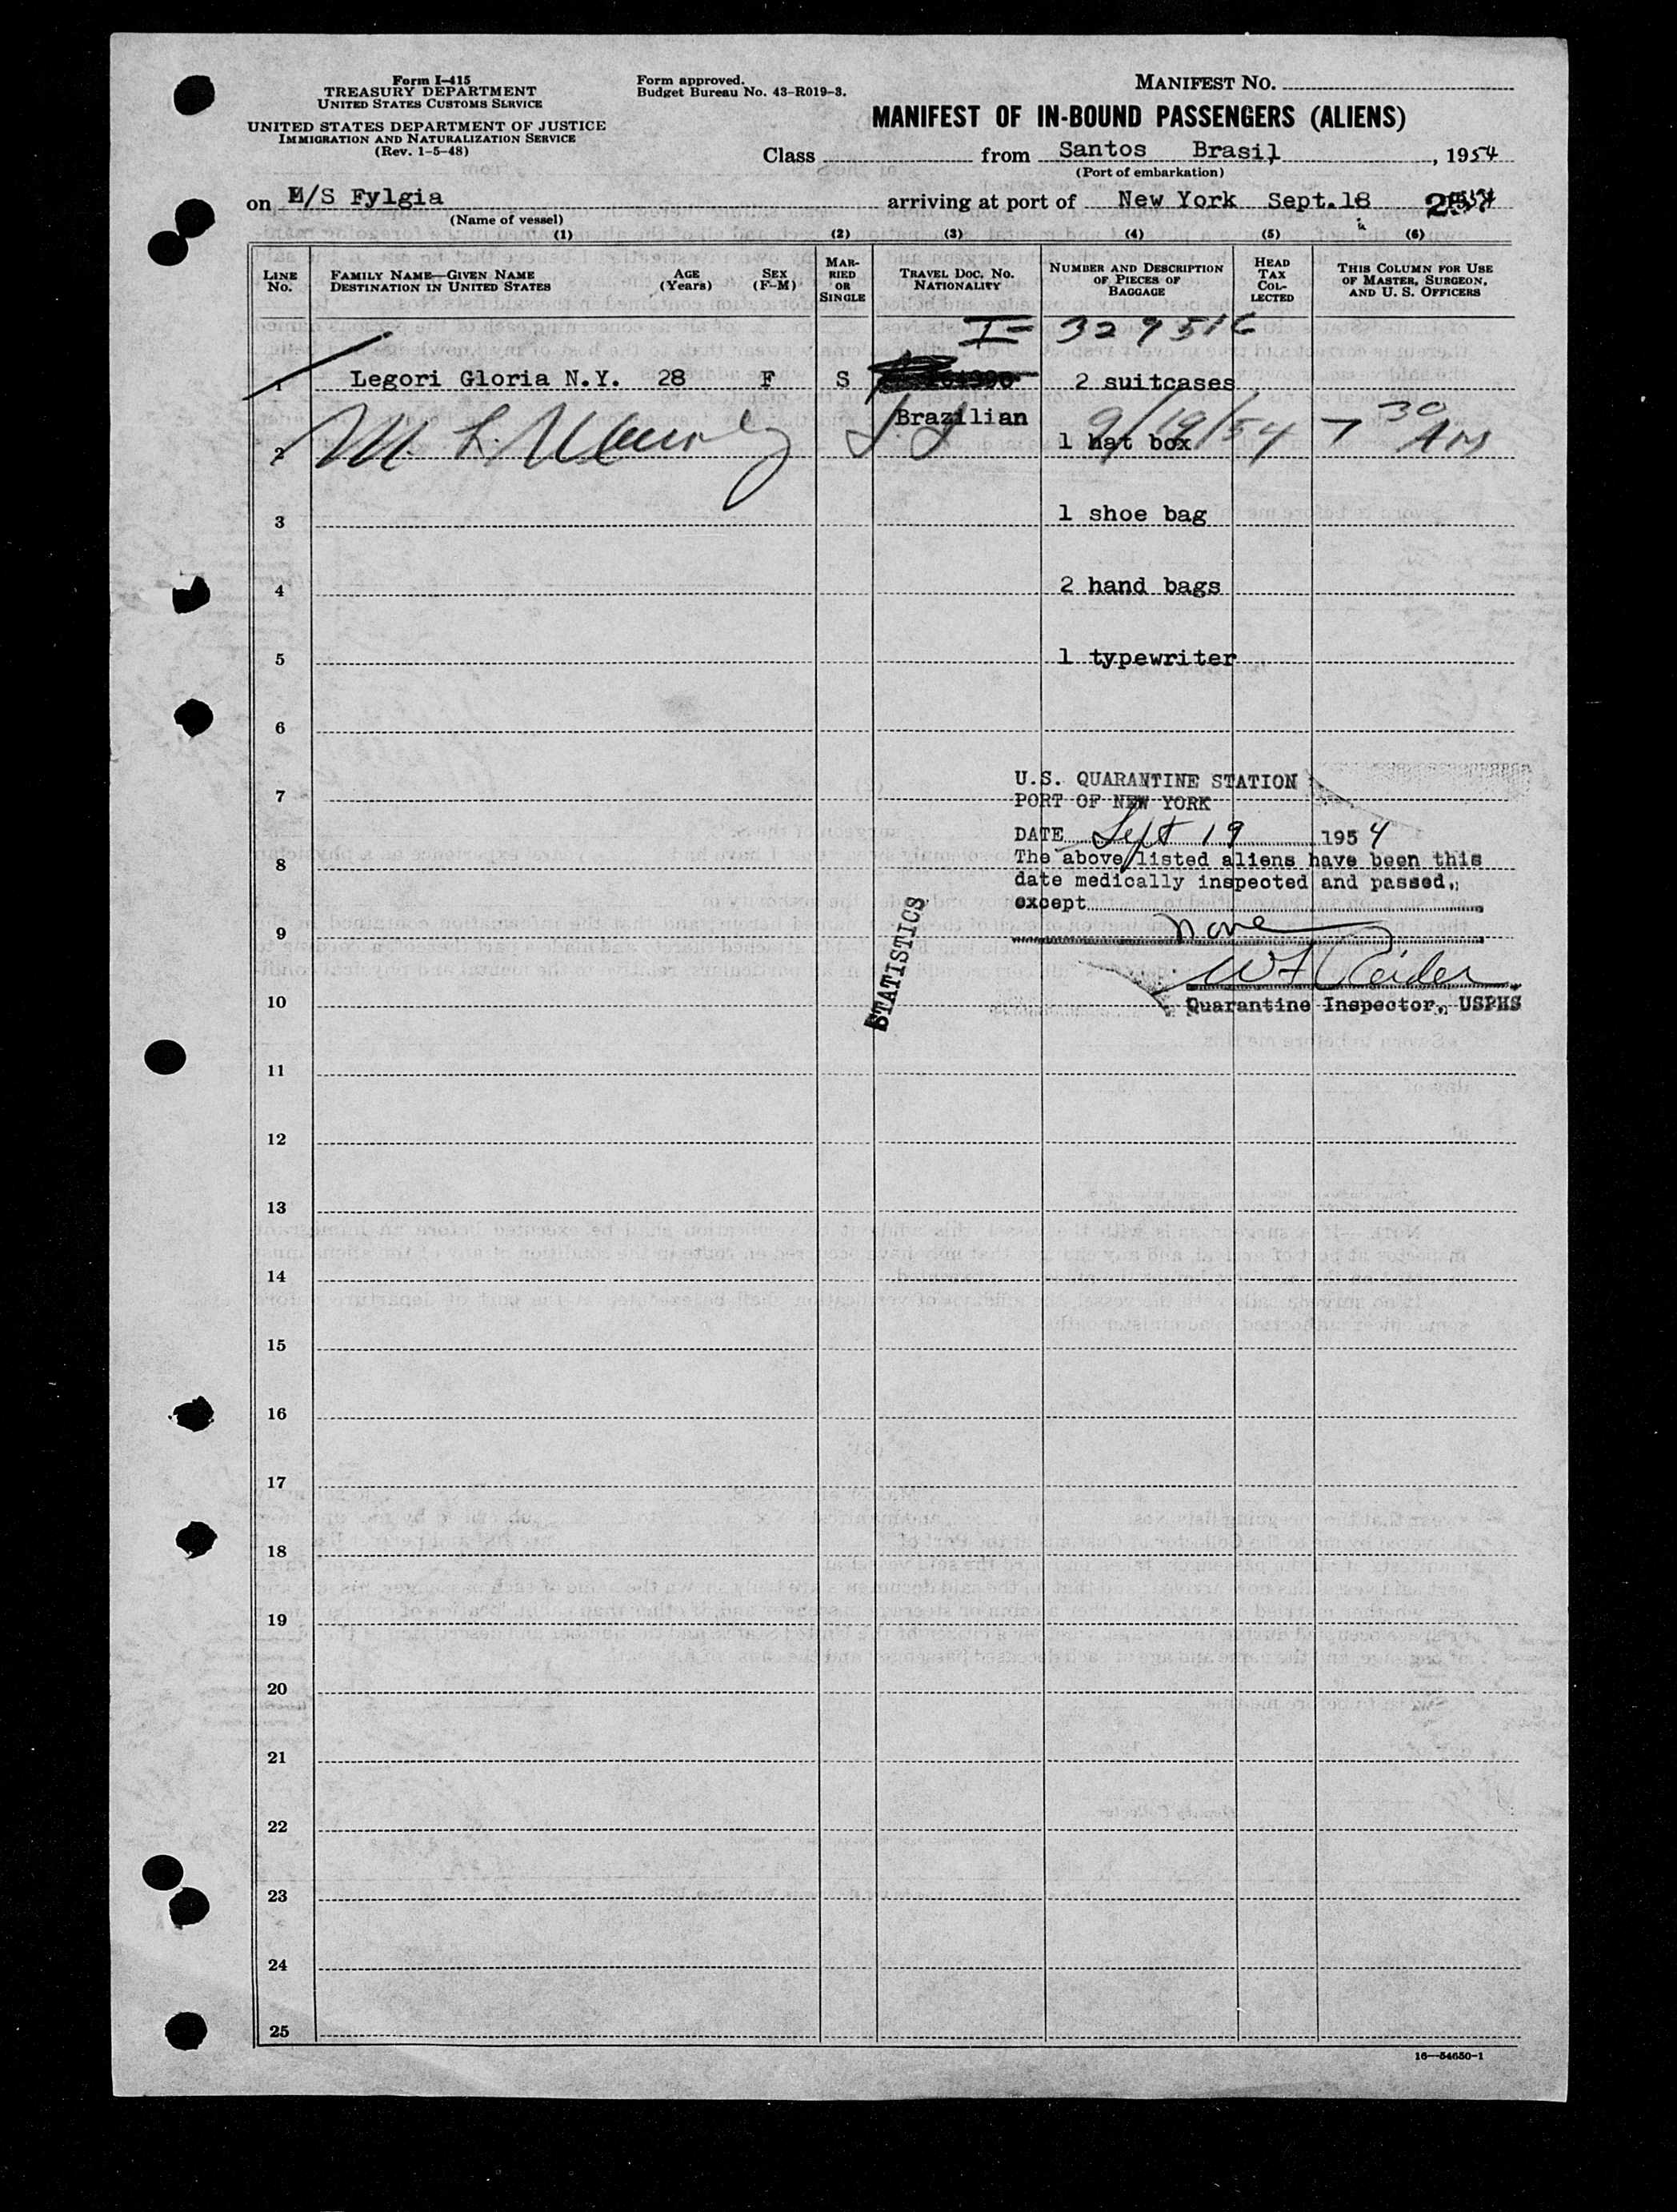 Form I-415
TREASURY DEPARTMENT
UNITED STATES CUSTOMS SERVICE
UNITED STATES DEPARTMENT OF JUSTICE
IMMIGRATION AND NATURALIZATION SERVICE
(Rev. 1-5-48)
Form approved.
Budget Bureau No. 43-R019-3.
MANIFEST NO.
MANIFEST OF IN-BOUND PASSENGERS (ALIENS)
Class from Santos Brasil, 1954
(Port of embarkation)
on M/S Fylgia arriving at port of New York Sept. 18
(Name of vessel)
(1) (2) (3) (4) (5) (6)
LINE No.
FAMILY NAME—GIVEN NAME
DESTINATION IN UNITED STATES
AGE (Years)
SEX (F-M)
MARRIED OR SINGLE
TRAVEL DOC. NO.
NATIONALITY
NUMBER AND DESCRIPTION OF PIECES OF BAGGAGE
HEAD TAX COLLECTED
THIS COLUMN FOR USE OF MASTER, SURGEON, AND U. S. OFFICERS
1 Legori Gloria N.Y. 28 F S 2 suitcases
Brazilian
2 1 hat box 9/19/54 7 30 AM
3 1 shoe bag
4 2 hand bags
5 1 typewriter
6
U.S. QUARANTINE STATION
7
PORT OF NEW YORK
DATE Sept 19 1954
8
The above listed aliens have been this
date medically inspected and passed,
except
none
9
STATISTICS
10
Quarantine Inspector, USPHS
11
12
13
14
15
16
17
18
19
20
21
22
23
24
25
16—54650-1